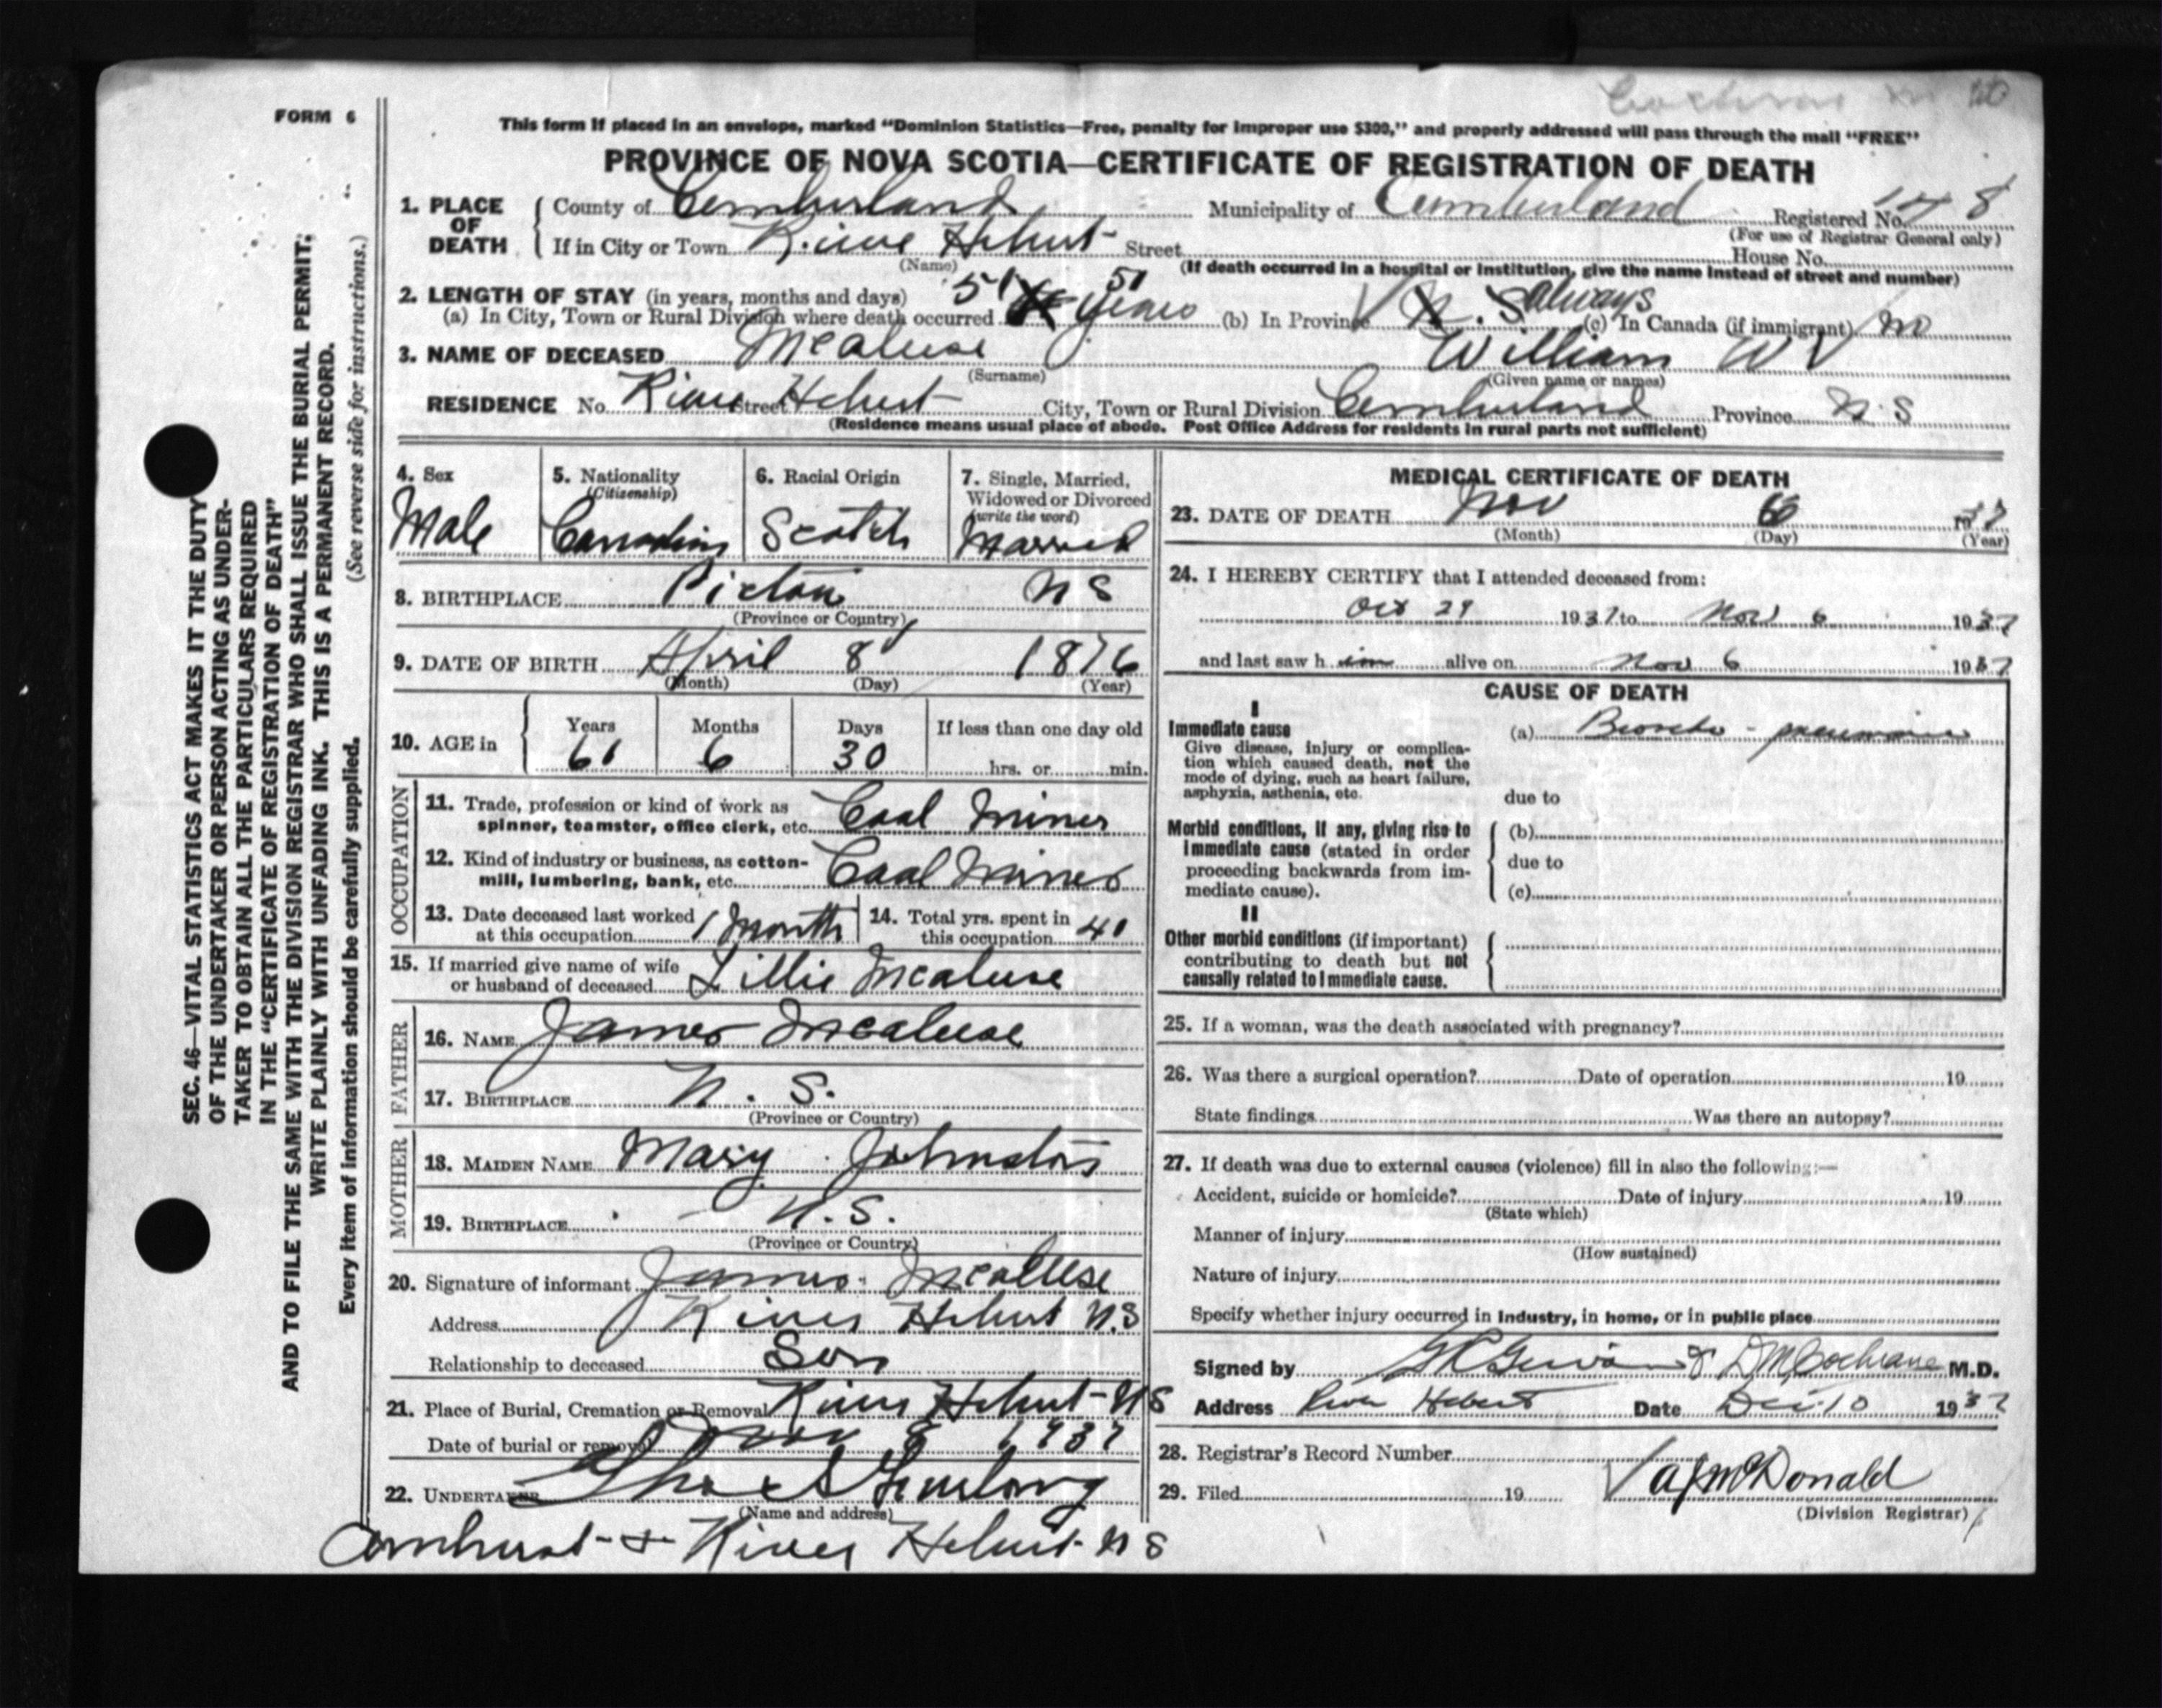 Cochrane
FORM 6
This form if placed in an envelope, marked "Dominion Statistics—Free, penalty for improper use $300," and properly addressed will pass through the mail "FREE"
PROVINCE OF NOVA SCOTIA—CERTIFICATE OF REGISTRATION OF DEATH
1. PLACE OF DEATH County of Cumberland Municipality of Cumberland Registered No. 148
(For use of Registrar General only)
If in City or Town River Hebert Street House No.
(Name) (If death occurred in a hospital or institution, give the name instead of street and number)
2. LENGTH OF STAY (in years, months and days) 51 51 always
(a) In City, Town or Rural Division where death occurred years (b) In Province N.S. (c) In Canada (if immigrant) no
3. NAME OF DECEASED McAleese William W
(Surname) (Given name or names)
RESIDENCE No. River Street Hebert City, Town or Rural Division Cumberland Province N.S
(Residence means usual place of abode. Post Office Address for residents in rural parts not sufficient)
4. Sex 5. Nationality 6. Racial Origin 7. Single, Married,
(Citizenship) Widowed or Divorced
(write the word)
Male Canadian Scotch Married
8. BIRTHPLACE Pictou N S
(Province or Country)
9. DATE OF BIRTH April 8 1876
(Month) (Day) (Year)
10. AGE in Years Months Days If less than one day old
61 6 30 hrs. or min.
OCCUPATION
11. Trade, profession or kind of work as
spinner, teamster, office clerk, etc. Coal Miner
12. Kind of industry or business, as cotton-
mill, lumbering, bank, etc. Coal Mines
13. Date deceased last worked
at this occupation 1 Month
14. Total yrs. spent in
this occupation 40
15. If married give name of wife
or husband of deceased Lillie McAleese
FATHER
16. NAME James McAleese
17. BIRTHPLACE N. S.
(Province or Country)
MOTHER
18. MAIDEN NAME Mary Johnston
19. BIRTHPLACE N.S.
(Province or Country)
20. Signature of informant James McAleese
Address River Hebert N.S
Relationship to deceased Son
21. Place of Burial, Cremation or Removal River Hebert N S
Date of burial or removal Nov 8 1937
22. UNDERTAKER Furlong
(Name and address)
Amherst & River Hebert N S
MEDICAL CERTIFICATE OF DEATH
23. DATE OF DEATH Nov 6 1937
(Month) (Day) (Year)
24. I HEREBY CERTIFY that I attended deceased from:
Oct 29 1937 to Nov 6 1937
and last saw h im alive on Nov 6 1937
CAUSE OF DEATH
I
Immediate cause (a) Broncho - pneumonia
Give disease, injury or complica-
tion which caused death, not the
mode of dying, such as heart failure,
asphyxia, asthenia, etc.
due to
Morbid conditions, if any, giving rise to (b)
immediate cause (stated in order
proceeding backwards from im- due to
mediate cause). (c)
II
Other morbid conditions (if important)
contributing to death but not
causally related to immediate cause.
25. If a woman, was the death associated with pregnancy?
26. Was there a surgical operation? Date of operation 19
State findings Was there an autopsy?
27. If death was due to external causes (violence) fill in also the following:—
Accident, suicide or homicide? Date of injury 19
(State which)
Manner of injury
(How sustained)
Nature of injury
Specify whether injury occurred in industry, in home, or in public place
Signed by D M Cochrane M.D.
Address River Hebert Date Dec 10 1937
28. Registrar's Record Number
29. Filed 19 McDonald
(Division Registrar)
SEC. 46—VITAL STATISTICS ACT MAKES IT THE DUTY
OF THE UNDERTAKER OR PERSON ACTING AS UNDER-
TAKER TO OBTAIN ALL THE PARTICULARS REQUIRED
IN THE "CERTIFICATE OF REGISTRATION OF DEATH"
AND TO FILE THE SAME WITH THE DIVISION REGISTRAR WHO SHALL ISSUE THE BURIAL PERMIT.
WRITE PLAINLY WITH UNFADING INK. THIS IS A PERMANENT RECORD.
Every item of information should be carefully supplied. (See reverse side for instructions.)